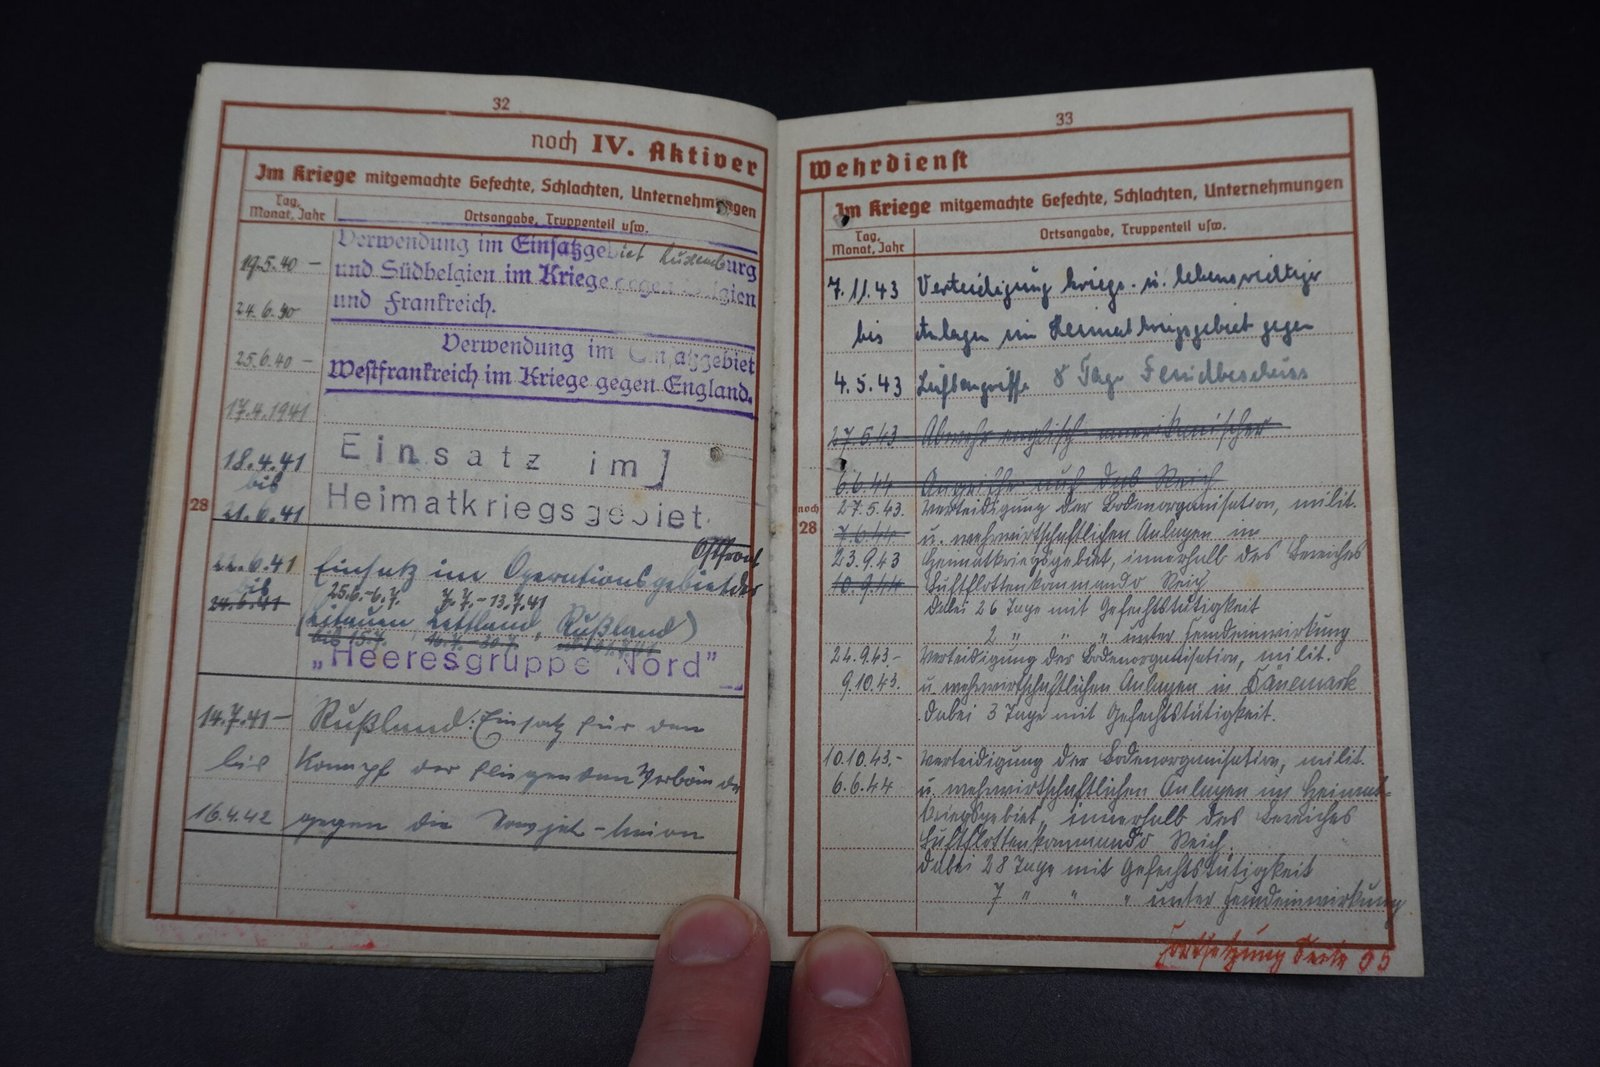 32
noch IV. Aktiver
Im Kriege mitgemachte Gefechte, Schlachten, Unternehmungen
Tag, Monat, Jahr
Ortsangabe, Truppenteil usw.
19.5.40 – Verwendung im Einsatzgebiet Luxemburg
und Südbelgien im Kriege gegen Belgien
24.6.40 und Frankreich.
25.6.40 – Verwendung im Einsatzgebiet
Westfrankreich im Kriege gegen England.
17.4.1941
18.4.41 Einsatz im
bis
28 21.6.41 Heimatkriegsgebiet.
Ostfront
22.6.41 Einsatz im Operationsgebiet der
bis 25.6.-6.7. 7.7.-13.7.41
24.6.41 (Litauen, Lettland, Rußland)
bis 15.7.
„Heeresgruppe Nord"
14.7.41 – Rußland: Einsatz für den
bis Kampf der fliegenden Verbände
16.4.42 gegen die Sowjet-Union
33
Wehrdienst
Im Kriege mitgemachte Gefechte, Schlachten, Unternehmungen
Tag, Monat, Jahr
Ortsangabe, Truppenteil usw.
7.11.43 Verteidigung kriegs- u. lebenswichtiger
bis Anlagen im Heimatkriegsgebiet gegen
4.5.43 Luftangriffe 8 Tage Feindbeschuss
27.5.43 Abwehr englisch amerikanischer
6.6.44 Angriffe auf das Reich
noch 28
27.5.43. Verteidigung der Bodenorganisation, milit.
7.6.44 u. wehrwirtschaftlichen Anlagen in
23.9.43 Heimatkriegsgebiet, innerhalb des Bereiches
10.9.44 Luftflottenkommando Reich
Dabei 26 Tage mit Gefechtstätigkeit
2 " " " unter Feindeinwirkung
24.9.43.- Verteidigung der Bodenorganisation, milit.
9.10.43. u. wehrwirtschaftlichen Anlagen in Dänemark
Dabei 3 Tage mit Gefechtstätigkeit.
10.10.43.- Verteidigung der Bodenorganisation, milit.
6.6.44 u. wehrwirtschaftlichen Anlagen im Heimat-
kriegsgebiet, innerhalb des Bereiches
Luftflottenkommando Reich.
Dabei 28 Tage mit Gefechtstätigkeit
7 " " " unter Feindeinwirkung
Fortsetzung Seite